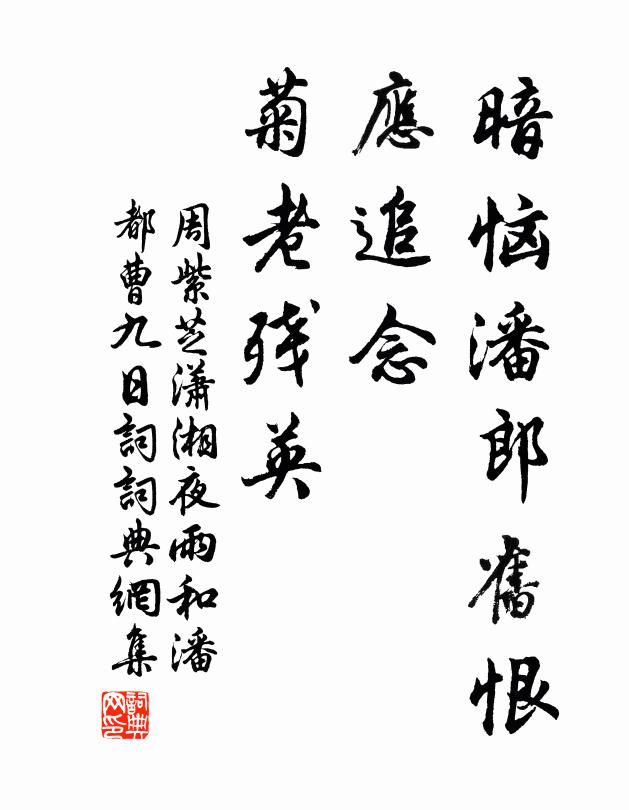 暗恼潘郎舊恨
應追念
菊老残英
周紫芝瀟湘夜雨和潘
都曹九日詞詞典網集
詞典
网印